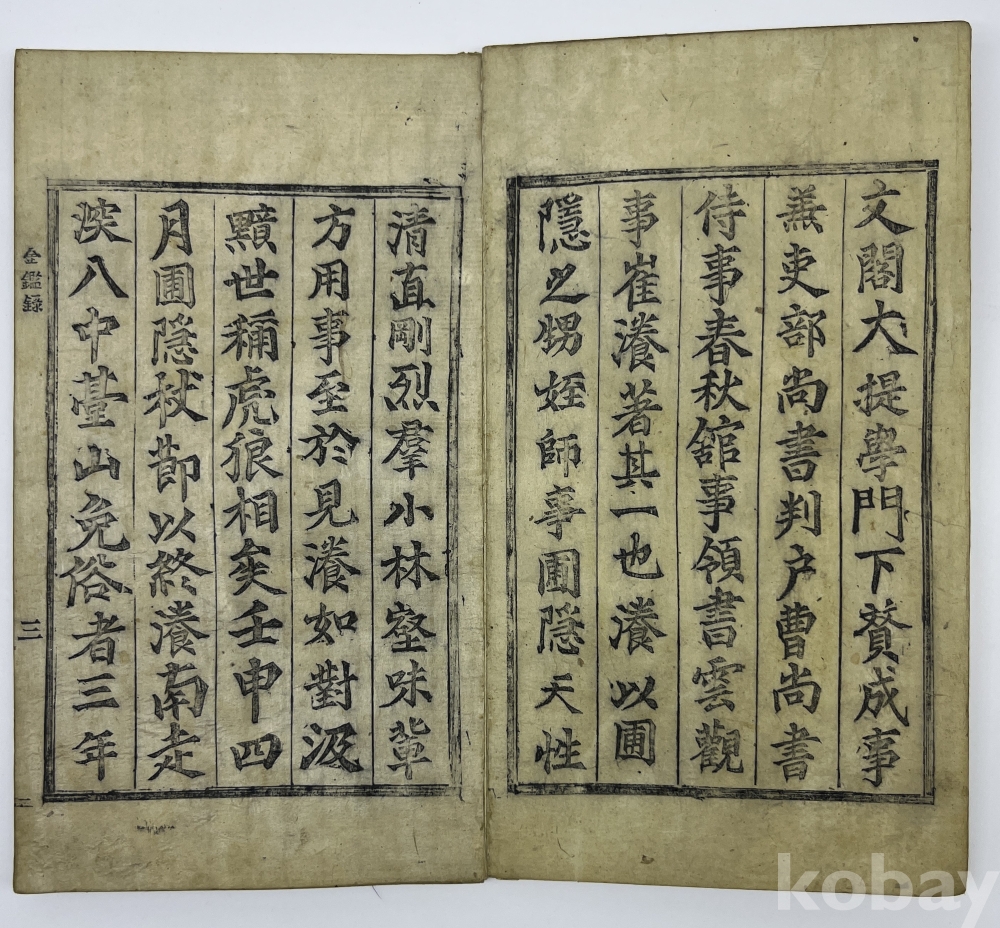 文閣大提學門下贊成事
兼吏部尚書判户曹尚書
侍事春秋舘事領書雲觀
事崔瀁著其一也瀁以圃
隱之甥姪師事圃隱天性
清直剛烈羣小林壑味輩
方用事至於見瀁如對汲
黯世稱虎狼相矣壬申四
月圃隱杖節以終瀁南走
淡八中臺山免俗者三年
金鑑錄
三
kobay